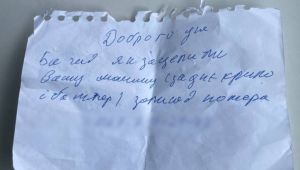 Доброго дня
Бачив як зацепили
Вашу машину (заднє крило
і бампер) записав номера